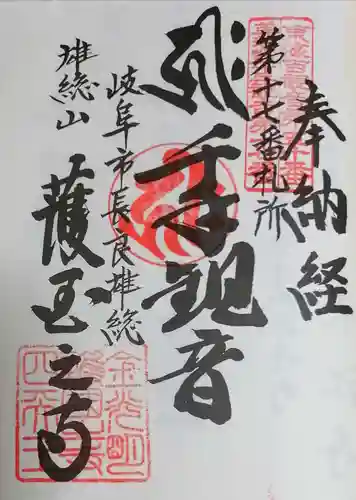 奉納経
第十七番札所
千手観音
岐阜市長良雄総
雄総山
護国之寺